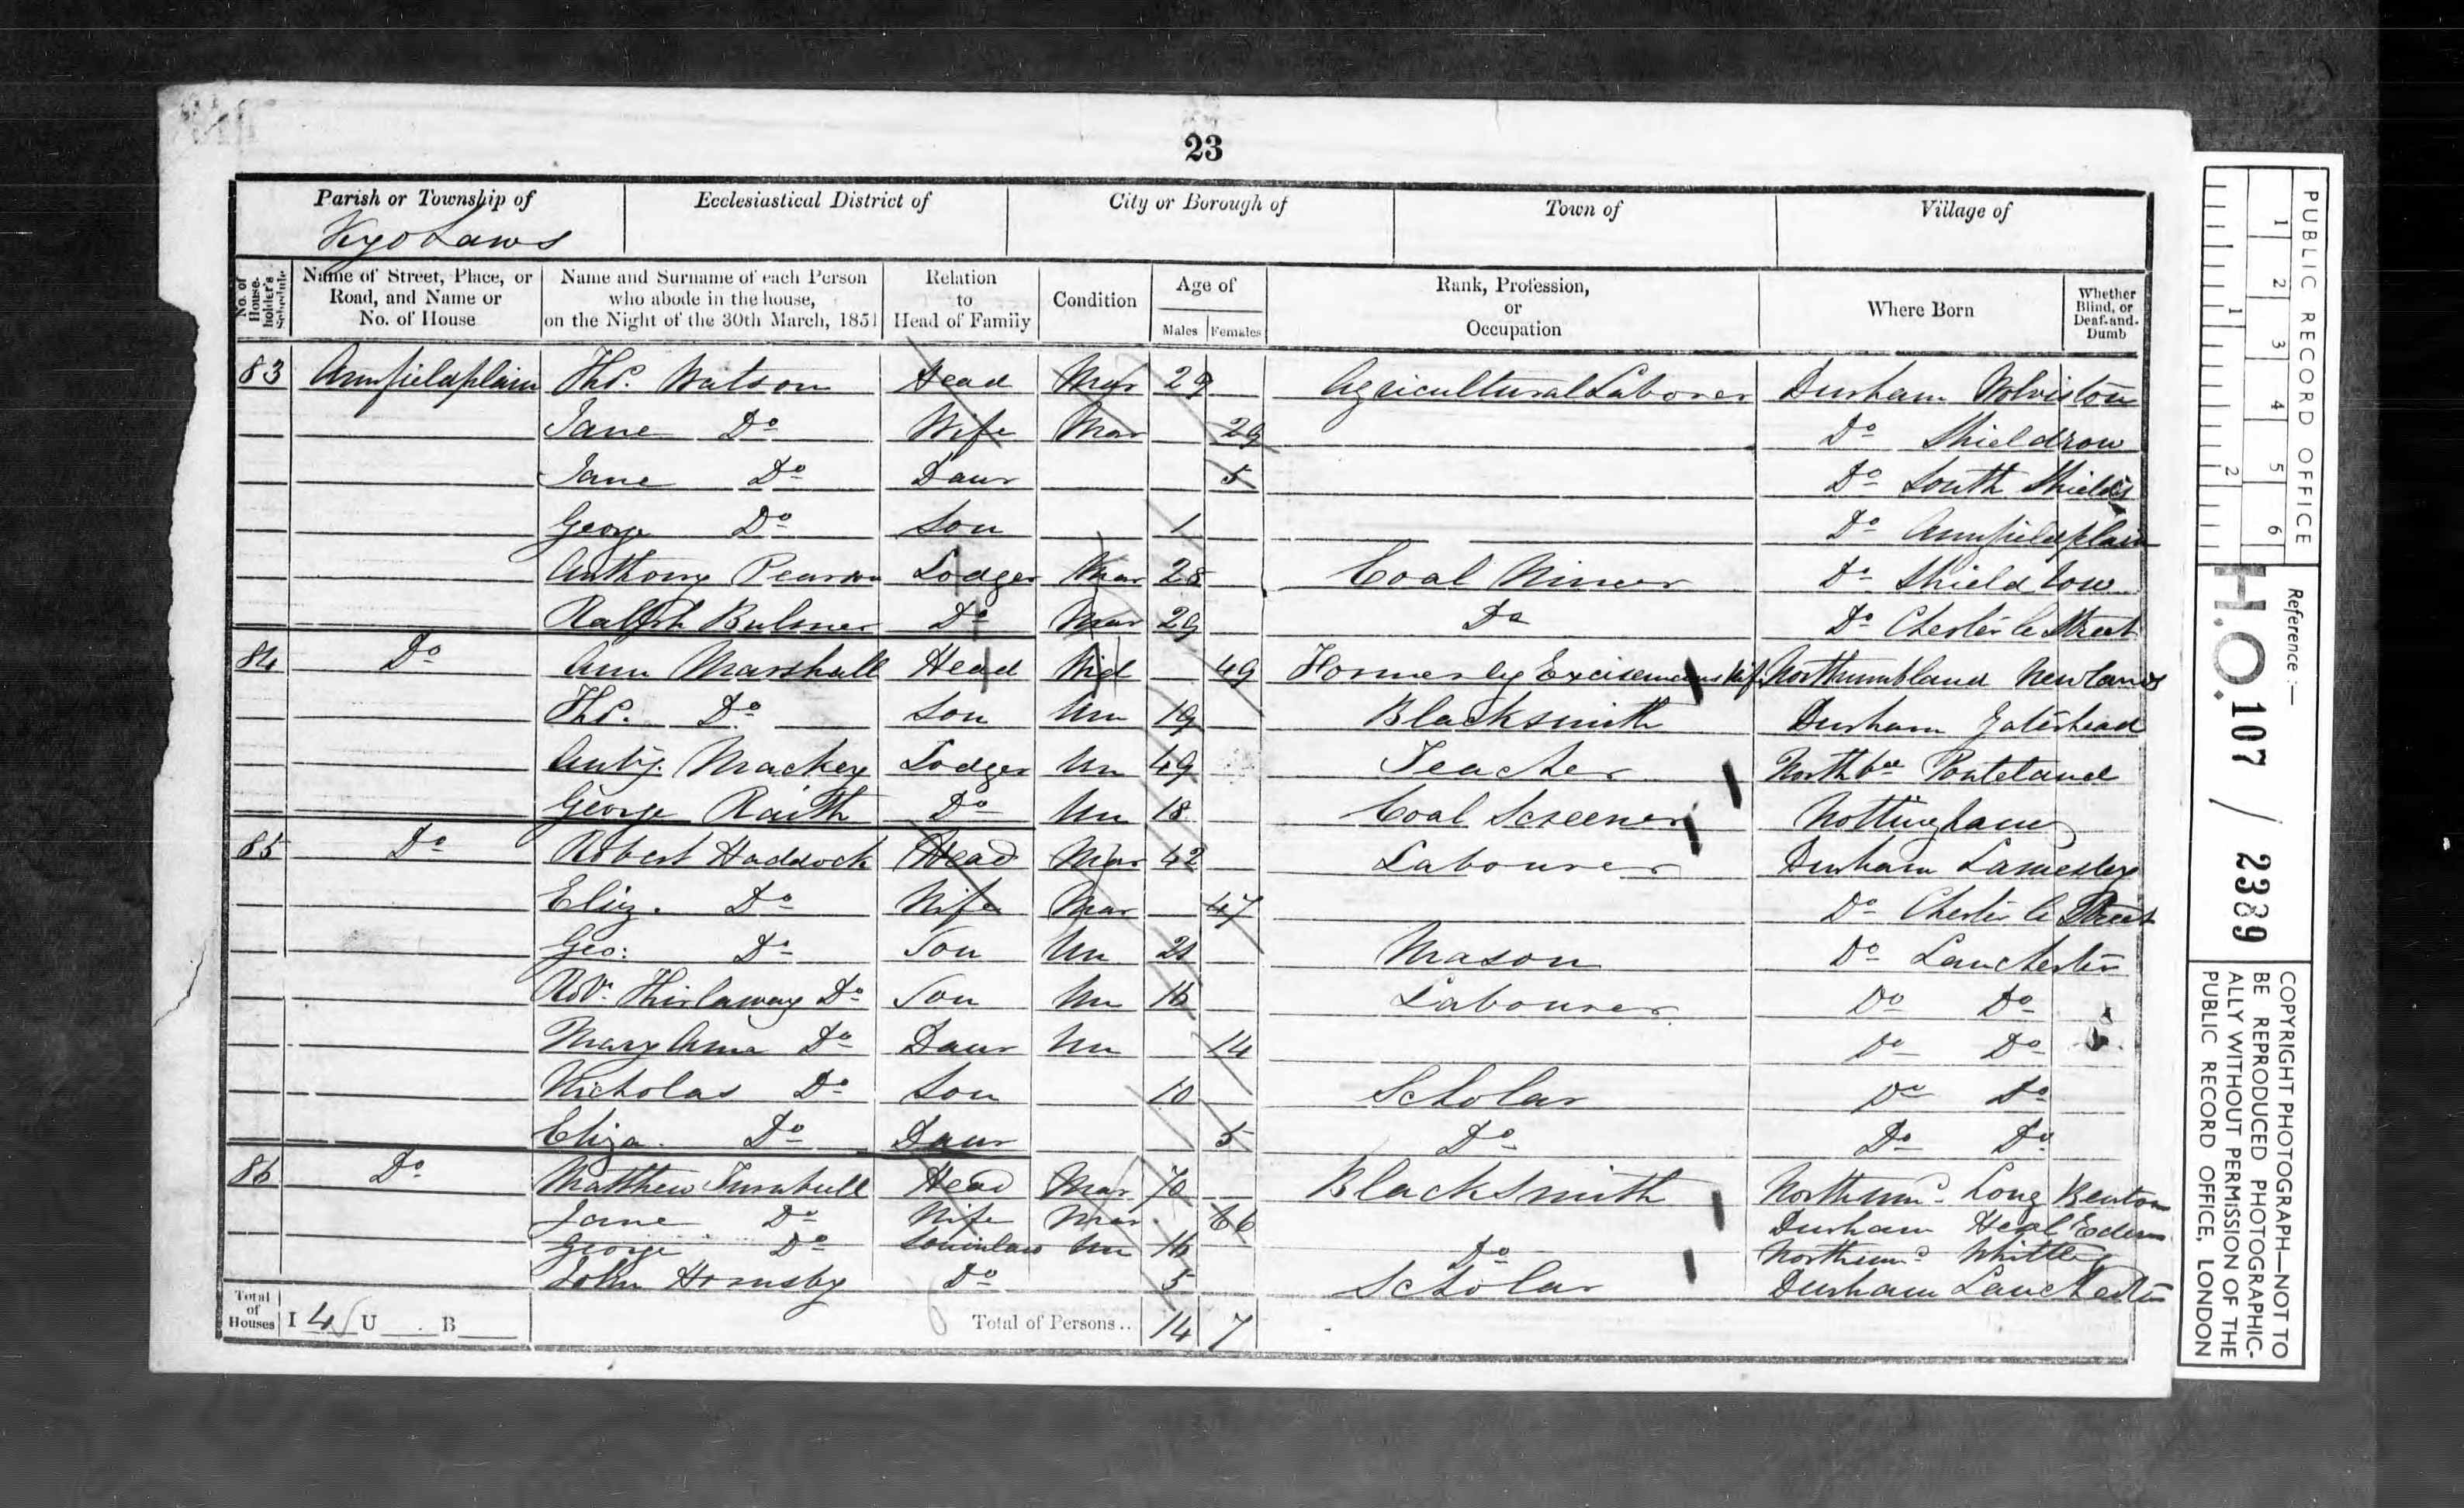 23
Parish or Township of Ecclesiastical District of City or Borough of Town of Village of
Kyo Laws
No. of House-holder's Schedule Name of Street, Place, or Road, and Name or No. of House Name and Surname of each Person who abode in the house, on the Night of the 30th March, 1851 Relation to Head of Family Condition Age of Males Females Rank, Profession, or Occupation Where Born Whether Blind, or Deaf-and-Dumb
83 Annfieldplain Thos. Watson Head Mar 29 Agricultural Laborer Durham Wolviston
Jane Do Wife Mar 29 Do Shieldrow
Jane Do Daur 5 Do South Shields
George Do Son 1 Do Annfieldplain
Anthony Pearson Lodger Mar 28 Coal Miner Do Shield row
Ralph Bulmer Do Mar 29 Do Do Chester le Street
84 Do Ann Marshall Head Wid 49 Formerly Excisemans Wife Northumbland Newlands
Thos. Do Son Un 19 Blacksmith Durham Gateshead
Anty. Mackey Lodger Un 49 Teacher Northbd Ponteland
George Raith Do Un 18 Coal Screener Nottingham
85 Do Robert Haddock Head Mar 42 Labourer Durham Lamesley
Eliz. Do Wife Mar 47 Do Chester le Street
Geo: Do Son Un 21 Mason Do Lanchester
Robt. Thirlaway Do Son Un 16 Labourer Do Do
Mary Ann Do Daur Un 14 Do Do
Nicholas Do Son 10 Scholar Do Do
Eliza. Do Daur 5 Do Do Do
86 Do Matthew Turnbull Head Mar 70 Blacksmith Northumd. Long Benton
Jane Do Wife Mar 66 Durham Heal Eden
George Do Soninlaw Un 16 Do Northumd Whittle
John Hornsby Do 5 Scholar Durham Lanchester
Total of Houses I 4 U B Total of Persons.. 14 7
PUBLIC RECORD OFFICE
1 2 3 4 5 6
1 2
Reference :-
H.O. 107 / 2389
COPYRIGHT PHOTOGRAPH—NOT TO
BE REPRODUCED PHOTOGRAPHIC-
ALLY WITHOUT PERMISSION OF THE
PUBLIC RECORD OFFICE, LONDON